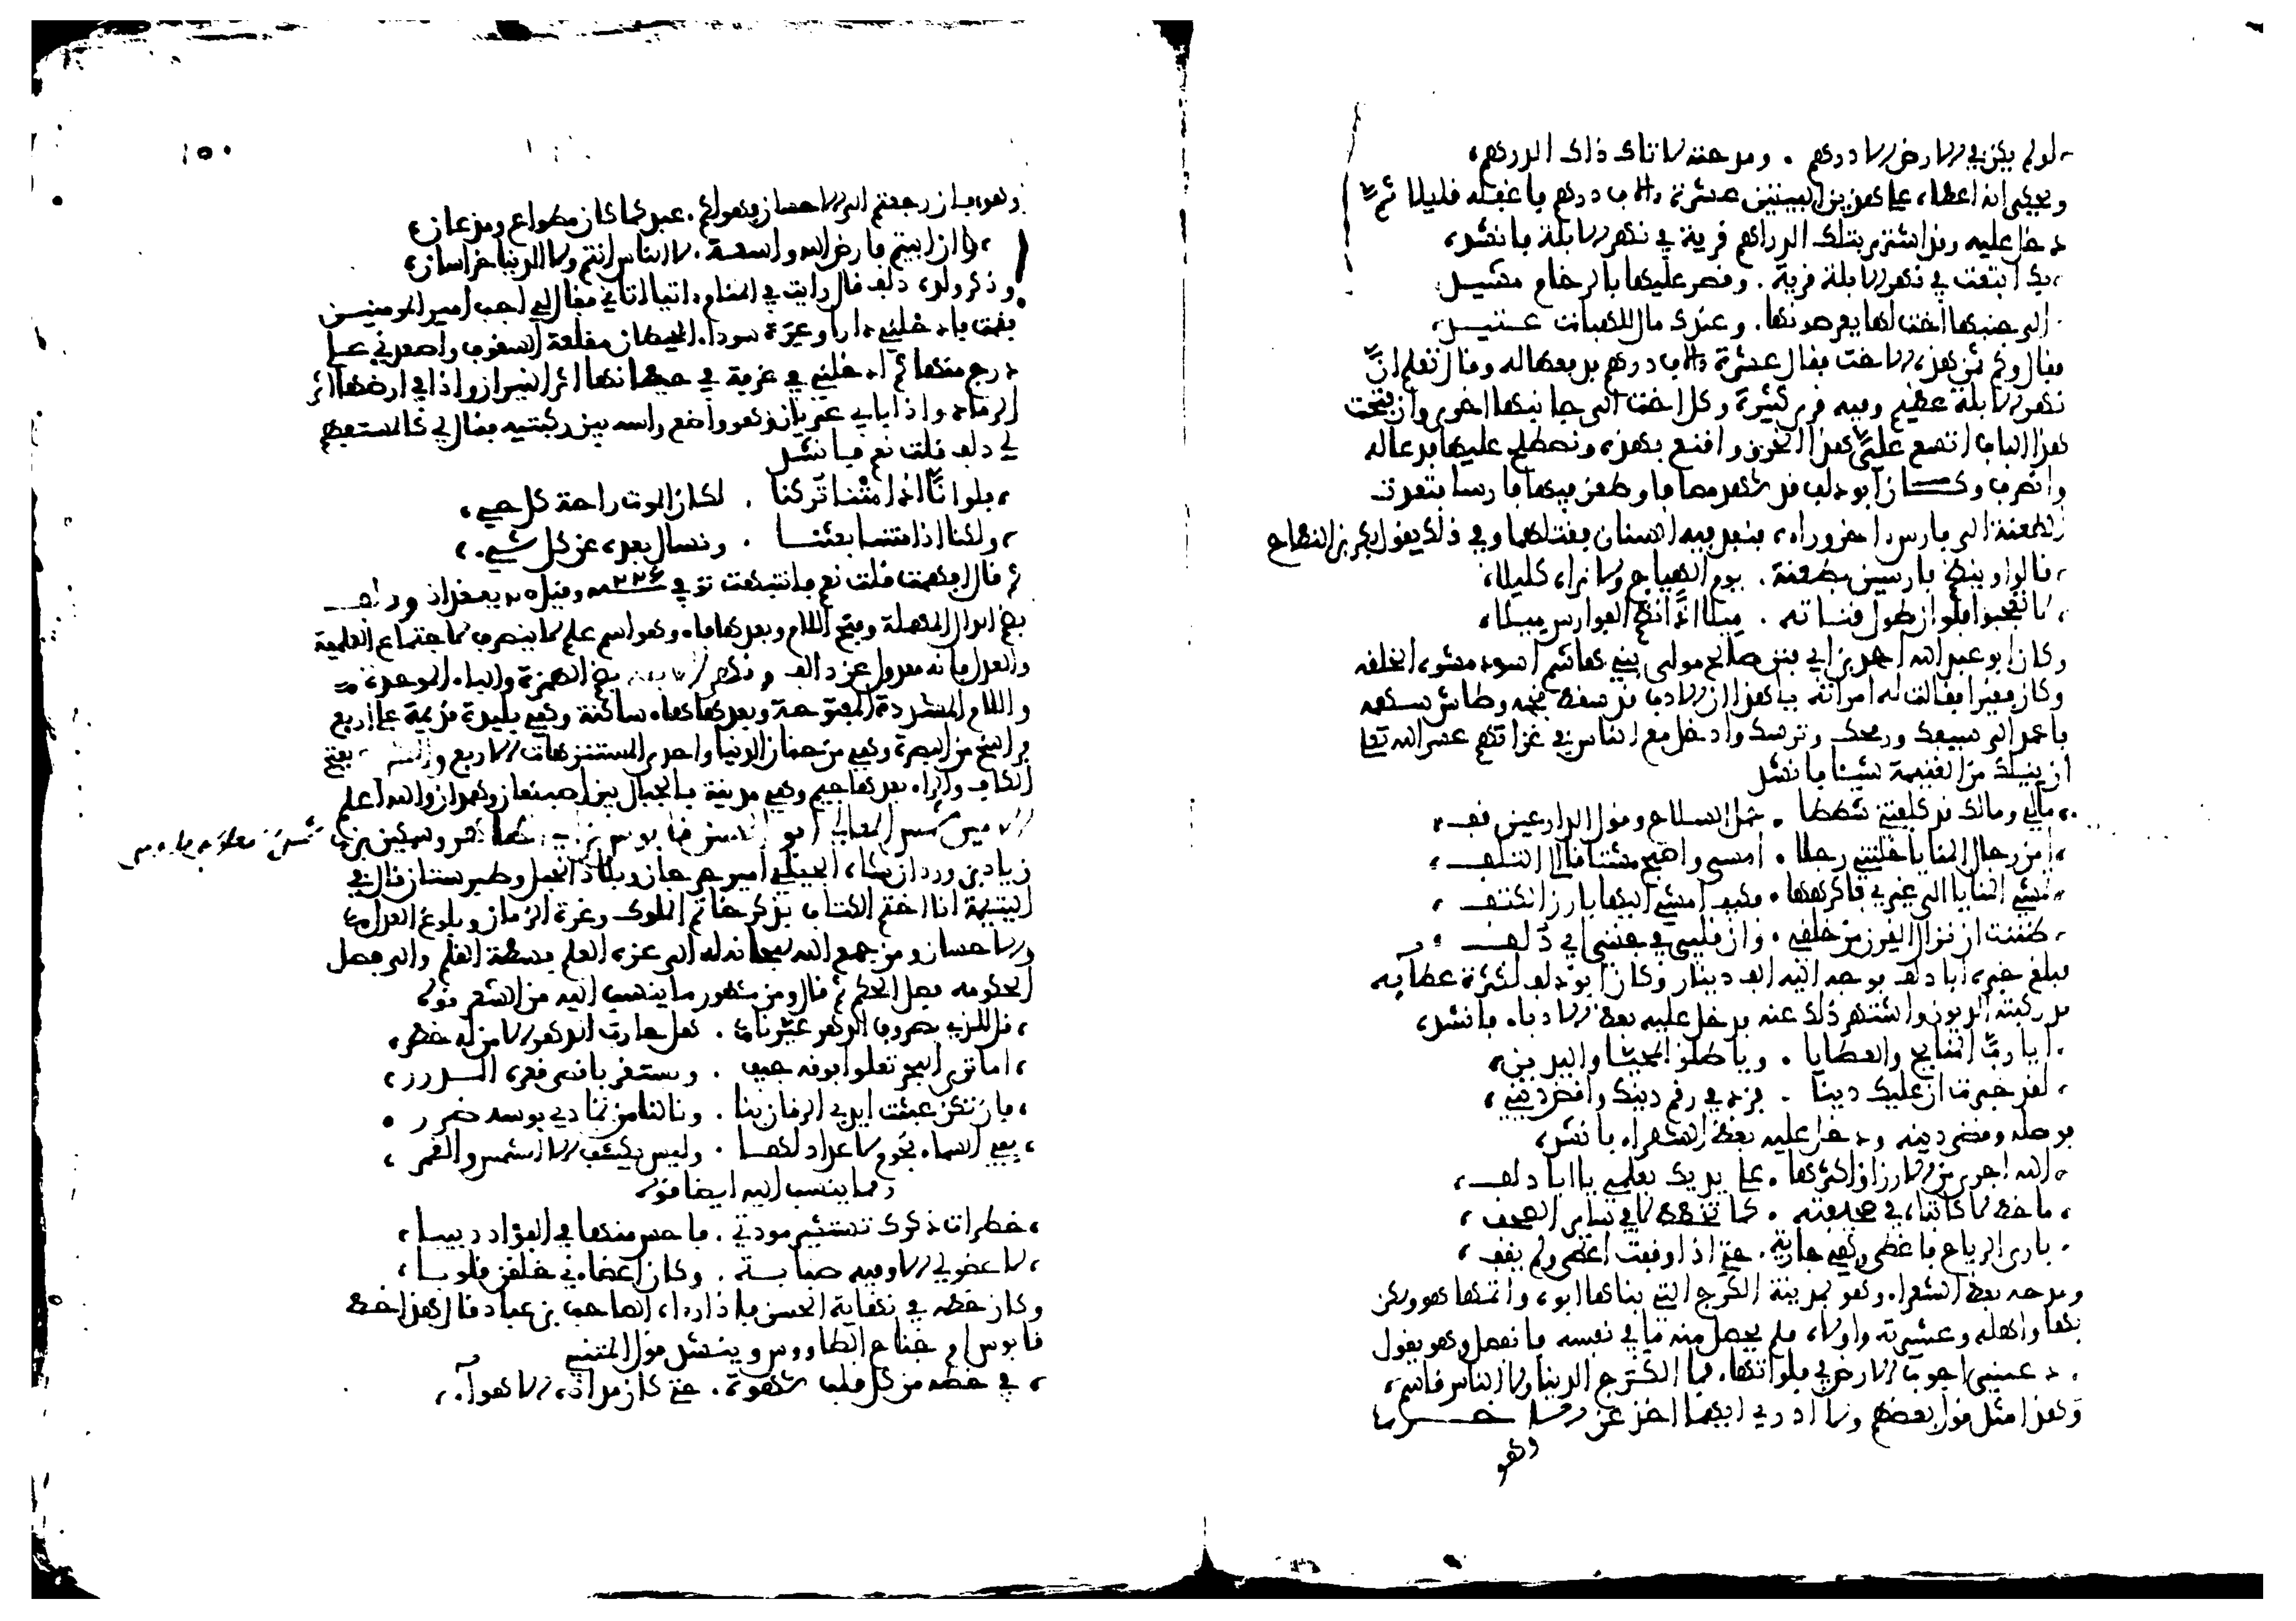 لو لم يكن في الارض الا درهم . ومدحته لاتاك ذاك الدرهم
ويحكى انه اعطاه على هذين البيتين عشرة الاف درهم فاغفله قليلا ثم
دخل عليه وقد اشترى بتلك الدراهم قرية في نهر الابلة فانشد
بك ابتعت في نهر الابلة قرية . وقصر عليها بالرخام مشيد
الى جنبها اخت لها يعرضونها . وعندك مال للهبات عتيد
فقال وكم ثمن هذه الاخت فقال عشرة الاف درهم فدفعها له وقال تعلم ان
نهر الابلة عظيم وفيه قرى كثيرة وكل اخت الى جانبها اخرى وان فتحت
هذا الباب اتسع علي هذا الخرق فاقنع بهذه ونصطلح عليها فدعا له
وانصرف وكان ابو دلف قد شهد مصافا وطعن فيها فارسا فنفذت
الطعنة الى فارس اخر وراه فنفذ فيه السنان فقتلهما وفي ذلك يقول بكر بن النطاح
قالوا وينظم فارسين بطعنة . يوم الهياج ولا تراه كليلا
لا تعجبوا فلو ان طول قناته . ميلا اذا نظم الفوارس ميلا
وكان ابو عبد الله احمد بن ابي فنن صالح مولى بني هاشم اسود مشوه الخلقة
وكان فقيرا فقالت له امراته يا هذا ان الادب قد سقط نجمه وطاش سهمه
فاعمد الى سيفك ورمحك وترسك وادخل مع الناس في غزاتهم عسى الله تعا
ان ينفلك من الغنيمة شيئا فانشد
مالي ومالك قد كلفتني شططا . حمل السلاح وقول الدارعين قف
امن رجال المنايا خلتني رجلا . امسى واصبح مشتاقا الى التلف
تمشي المنايا الى غيري فاكرهها . فكيف امشي اليها بارز الكتف
ظننت ان نزال القرن من خلقي . وان قلبي في جنبي ابي دلف
فبلغ خبره ابا دلف فوجه اليه الف دينار وكان ابو دلف لكثرة عطايه
قد ركبته الديون واشتهر ذلك عنه فدخل عليه بعض الادباء فانشد
ايا رب المنايح والعطايا . ويا طلق المحيا واليدين
لقد خبرت ان عليك دينا . فزد في رقم دينك واقض ديني
فوصله وقضى دينه ودخل عليه بعض الشعراء فانشد
الله اجرى من الارزاق اكثرها . على يديك بعلمي يا ابا دلف
ما خط لا كاتباه في صحيفته . كما تخطط لا في ساير الصحف
بارى الرياح فاعطى وهي جارية . حتى اذا وقفت اعطى ولم يقف
ومدحه بعض الشعراء وهو بمدينة الكرج التي بناها ابوه واتمها هو وسكن
بها واهله وعشيرته واولاده فلم يحصل منه ما في نفسه فانفصل وهو يقول
دعيني اجوب الارض في فلواتها . فما الكرج الدنيا ولا الناس قاسم
وهذا مثل قول بعضهم ولا ادري ايهما اخذ عن
وهو
١٥٠
وهو فان رجعتم الى الاحسان فهو لكم . عبد كما كان مطواع ومذعان
وان ابيتم فارض الله واسعة . لا الناس انتم ولا الدنيا خراسان
وذكر ولده دلف قال رايت في المنام اتيا اتاني فقال لي اجب امير المومنين
فقمت فادخلني دارا وعرة سوداء الحيطان مقلعة السقوف واصعدني على
درج منها ثم ادخلني في غرفة في حيطانها اثر النيران واذا في ارضها اثر
الرماد واذا بابي عريان وهو واضع راسه بين ركبتيه فقال لي كالمستفهم
لي دلف قلت نعم فانشد
فلو انا اذا متنا تركنا . لكان الموت راحة كل حي
ولكنا اذا متنا بعثنا . ونسال بعده عن كل شي
ثم قال افهمت قلت نعم فانتبهت توفي سنة ٢٢٦ وقيل ٢٥ ببغداد ودلف
بضم الدال المهملة وفتح اللام وبعدها فاء وهو اسم علم لا ينصرف لاجتماع العلمية
والعدل فانه معدول عن دالف ونهر الابلة بضم الهمزة والباء الموحدة
واللام المشددة المفتوحة وبعدها هاء ساكنة وهي بليدة قديمة على اربع
فراسخ من البصرة وهي من جنان الدنيا واحدى المستنزهات الاربع والكرج بفتح
الكاف والراء بعدها جيم وهي مدينة بالجبال بين اصبهان وهمذان والله اعلم
الامير شمس المعالي ابو الحسن قابوس بن ابي طاهر وشمكير بن
زياد بن وردان شاه الجيلي امير جرجان وبلاد الجبل وطبرستان قال في
اليتيمة انا اختم الكتاب بذكر خاتم الملوك وغرة الزمان وينبوع العدل
والاحسان ومن جمع الله سبحانه له الى عزة العلم بسطة القلم والى فصل
الحكومة فصل الحكم ثم قال ومن مشهور ما ينسب اليه من الشعر قوله
قل للذي بصروف الدهر عيرنا . هل حارب الدهر الا من له خطر
اما ترى البحر تعلوا فوقه جيف . ويستقر باقصى قعره الدرر
فان تكن عبثت ايدي الزمان بنا . ونالنا من تمادي بوسه ضرر
ففي السماء نجوم لا عداد لها . وليس يكسف الا الشمس والقمر
ومما ينسب اليه ايضا قوله
خطرات ذكرك تستثير مودتي . فاحس منها في الفؤاد دبيبا
لا عضو لي الا وفيه صبابة . وكان اعضاي خلقن قلوبا
وكان خطه في نهاية الحسن فاذا راه الصاحب بن عباد قال هذا خط
قابوس ام جناح الطاووس وينشد قول المتنبي
في خطه من كل قلب شهوة . حتى كان مداده الاهواء